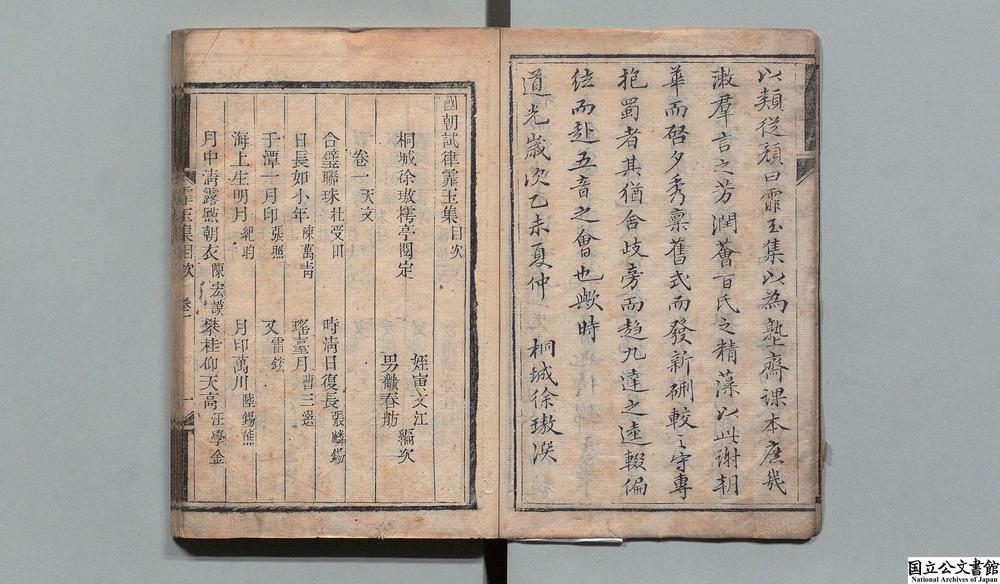 以類從顏曰霏玉集以為塾齋課本庶幾
漱羣言之芳潤薈百氏之精藻以此謝朝
華而啓夕秀稟舊式而發新硎較之守專
抱蜀者其猶舍歧旁而趋九達之逵輟偏
絃而赴五音之會也歟時
道光歲次乙未夏仲 桐城徐璈
國朝試律霏玉集目次
桐城徐璈樗亭閱定
姪寅文江
男徽春舫
編次
卷一 天文
合璧聯珠 杜受田 時清日復長 張麟錫
日長如小年 陳萬青 瑤臺月 曹三選
千潭一月印 張熙 又 雷鋐
海上生明月 紀昀 月印萬川 陸錫熊
月中清露點朝衣 陳宏謨 攀桂仰天高 汪學金
霏玉集目次 卷一 一
国立公文書館
National Archives of Japan